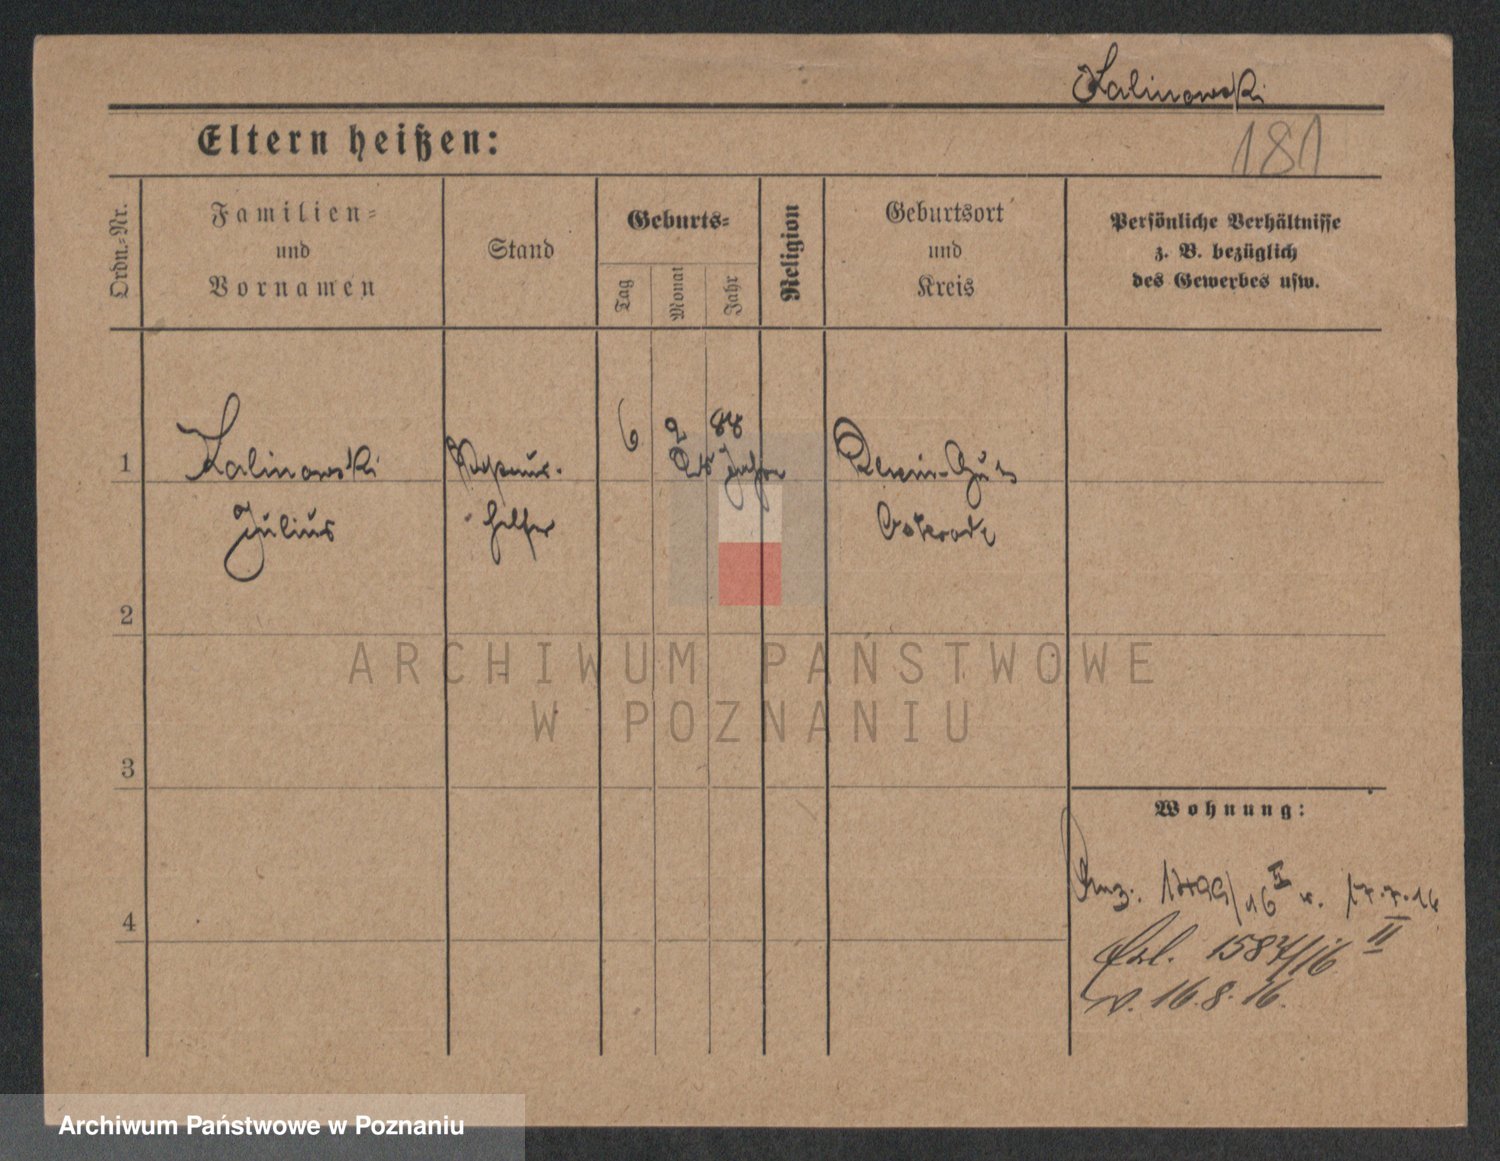 Kalinowski
181
Eltern heißen:
Ordn.=Nr.
Familien=
und
Vornamen
Stand
Geburts=
Tag
Monat
Jahr
Religion
Geburtsort
und
Kreis
Persönliche Verhältnisse
z. B. bezüglich
des Gewerbes usw.
1
Kalinowski
6 2 88
Julius
helfer
Osterode
2
ARCHIWUM PAŃSTWOWE
W POZNANIU
3
Wohnung:
4
17.7.16
1587/16 II
v. 16.8.16.
Archiwum Państwowe w Poznaniu